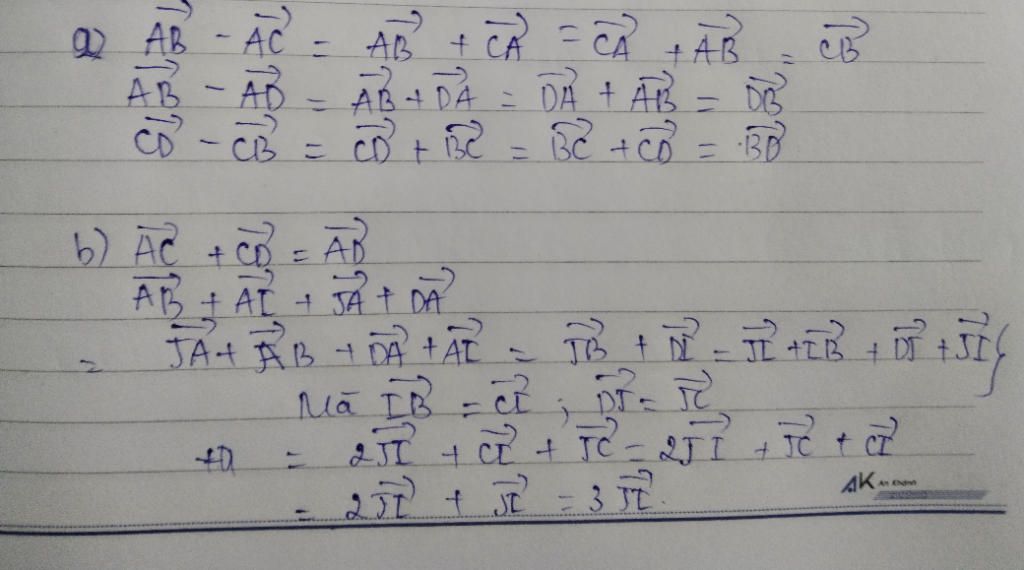 a) $\overrightarrow{AB} - \overrightarrow{AC} = \overrightarrow{AB} + \overrightarrow{CA} = \overrightarrow{CA} + \overrightarrow{AB} = \overrightarrow{CB}$
$\overrightarrow{AB} - \overrightarrow{AD} = \overrightarrow{AB} + \overrightarrow{DA} = \overrightarrow{DA} + \overrightarrow{AB} = \overrightarrow{DB}$
$\overrightarrow{CD} - \overrightarrow{CB} = \overrightarrow{CD} + \overrightarrow{BC} = \overrightarrow{BC} + \overrightarrow{CD} = \overrightarrow{BD}$
b) $\overrightarrow{AC} + \overrightarrow{CD} = \overrightarrow{AD}$
$\overrightarrow{AB} + \overrightarrow{AI} + \overrightarrow{JA} + \overrightarrow{DA}$
$= \overrightarrow{JA} + \overrightarrow{AB} + \overrightarrow{DA} + \overrightarrow{AI} = \overrightarrow{JB} + \overrightarrow{DI} = \overrightarrow{JI} + \overrightarrow{IB} + \overrightarrow{DJ} + \overrightarrow{JI}$ }
Mà $\overrightarrow{IB} = \overrightarrow{CI}$ ; $\overrightarrow{DJ} = \overrightarrow{JC}$
$= 2\overrightarrow{JI} + \overrightarrow{CI} + \overrightarrow{JC} = 2\overrightarrow{JI} + \overrightarrow{JC} + \overrightarrow{CI}$
$= 2\overrightarrow{JI} + \overrightarrow{JI} = 3\overrightarrow{JI}$.
AK An Khánh